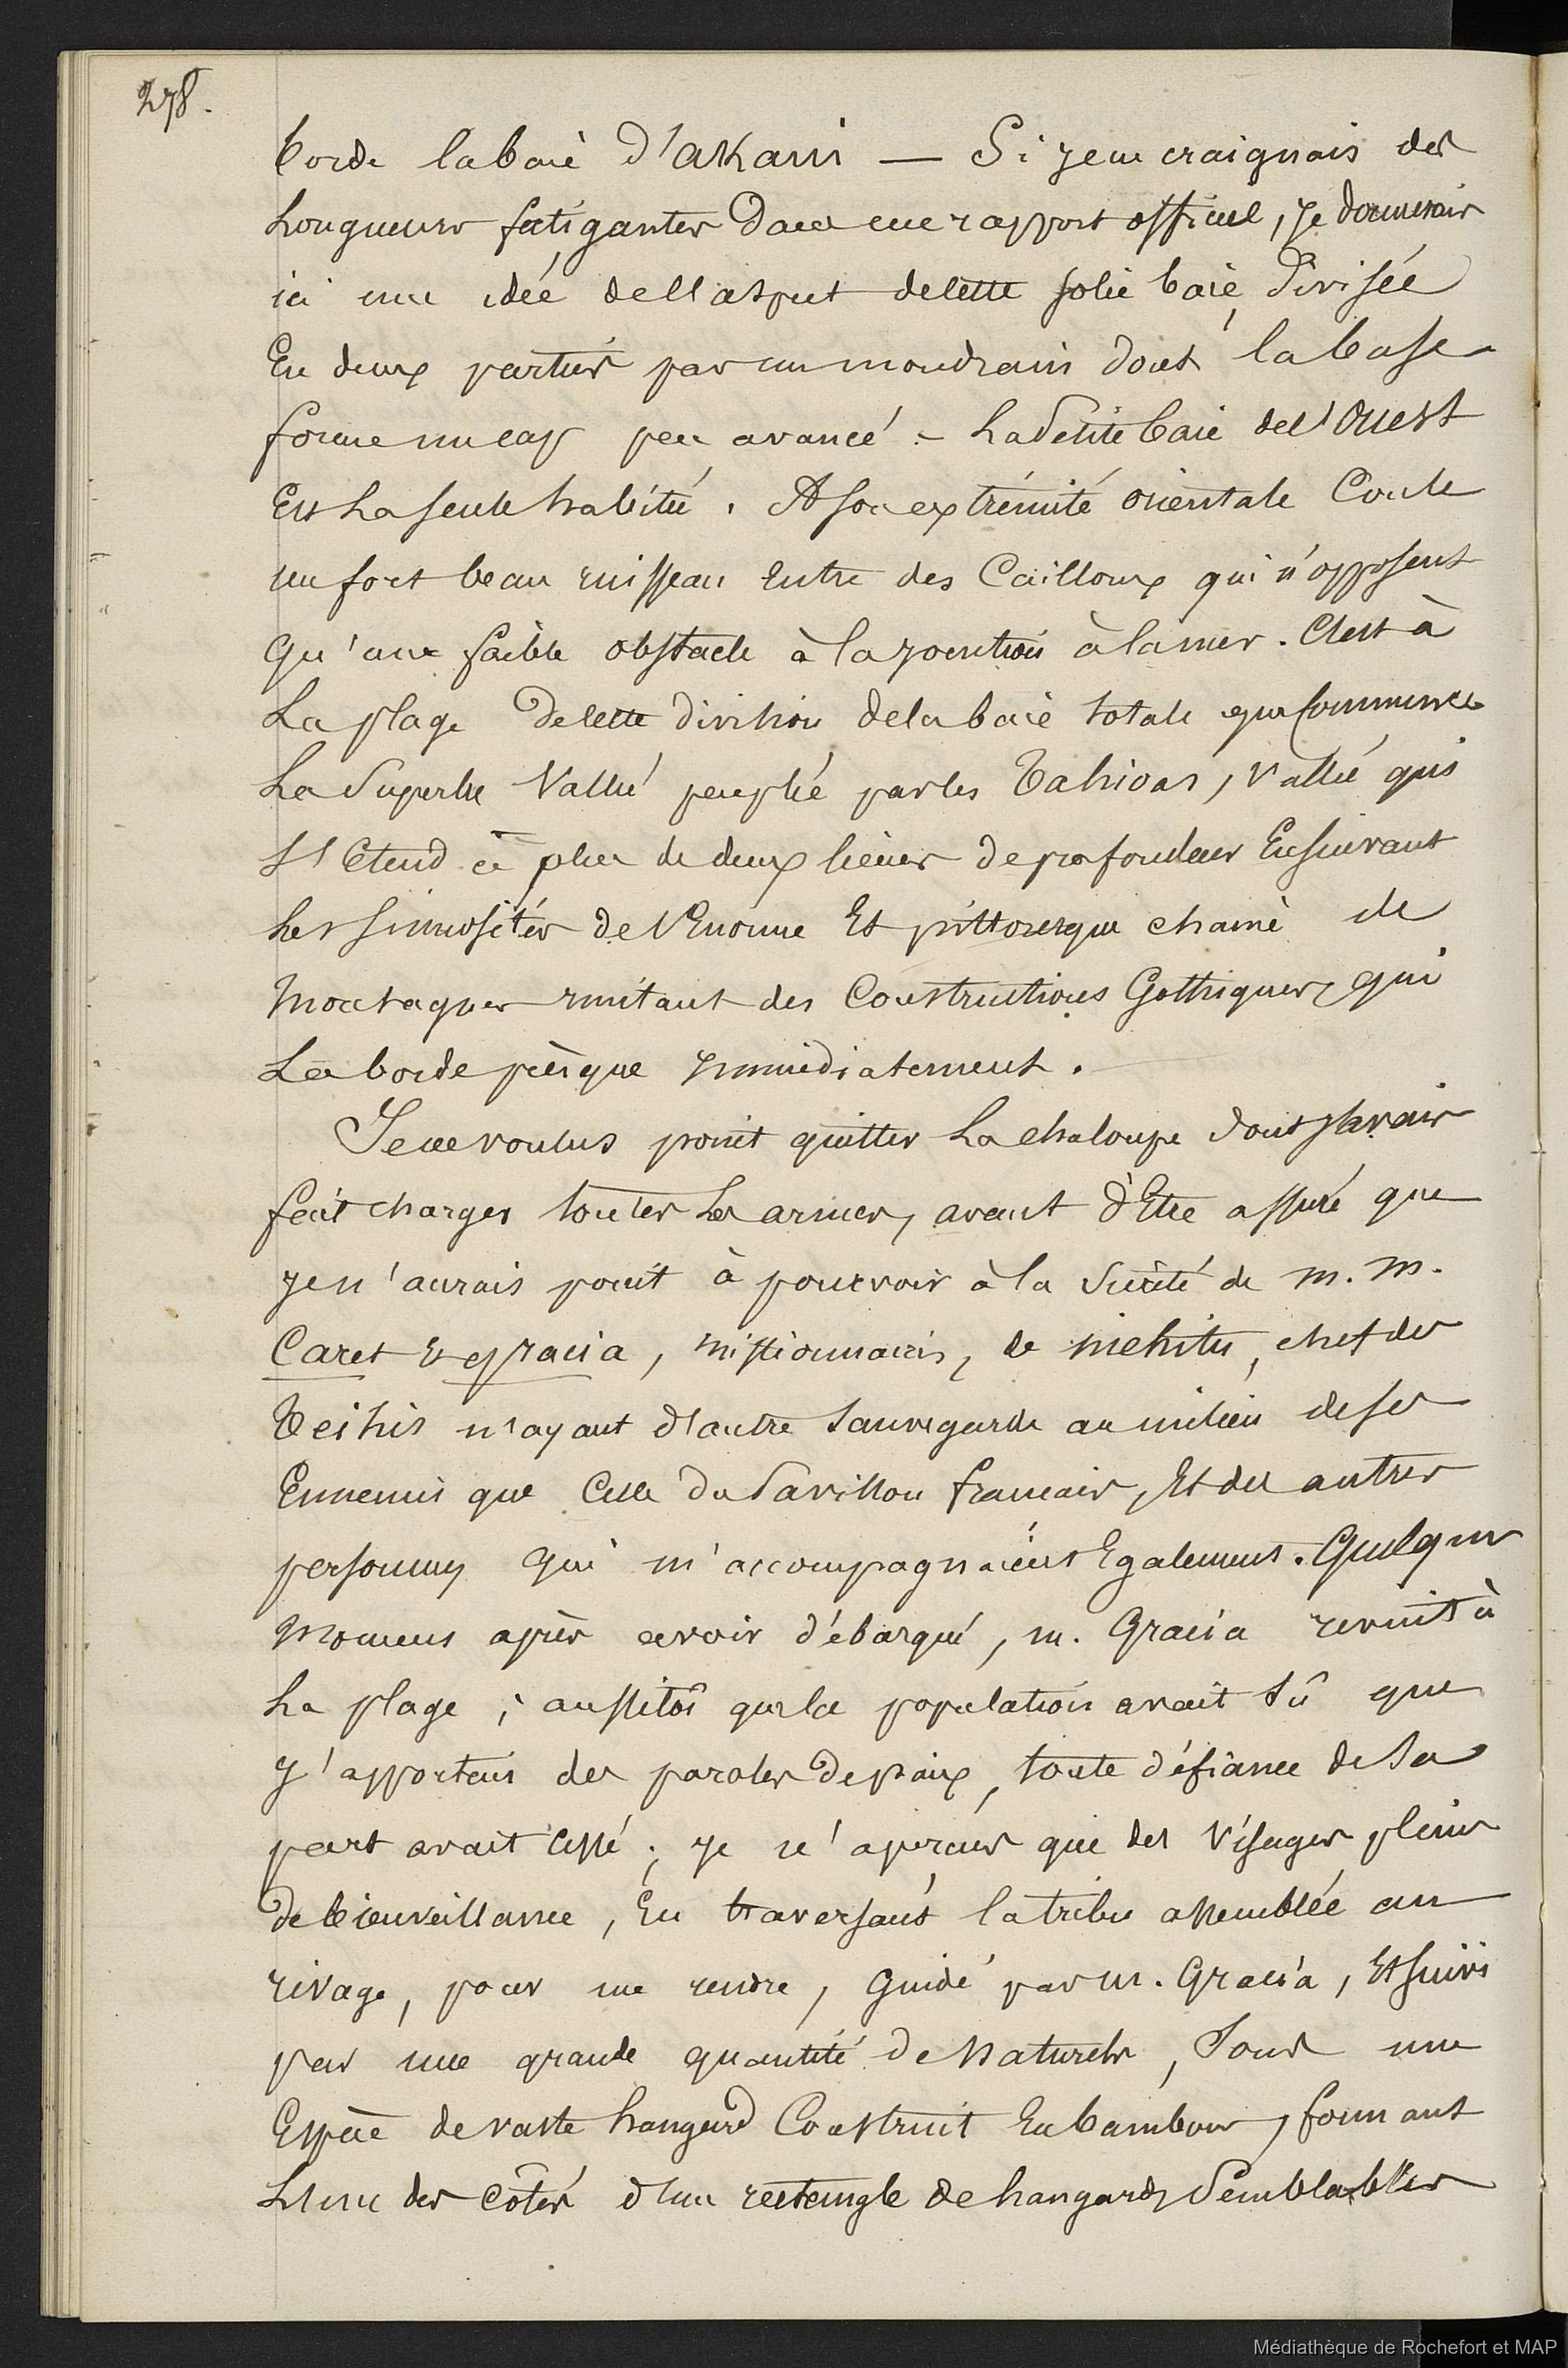 278.
borde la baie d'akani — Si je ne craignais des
Longueurs fatigantes dans un rapport officiel, je donnerais
ici une idée de l'aspect de cette jolie baie, divisée
En deux parties par un mondrain dont la base
forme un cap peu avancé. - La Petite baie de l'Ouest
Est La seule habitée. A son extrémité orientale Coule
un fort beau ruisseau Entre des Cailloux qui n'opposent
Qu'un faible obstacle à la jonction à la mer. C'est à
La plage de cette division de la baie totale que Commence
La Superbe Vallée peuplée par les Tahivas, Vallée qui
S'Etend à plus de deux lieues de profondeur En suivant
Les Sinuosités de l'Enorme Et pittoresque chaine de
Montagnes imitant des Constructions Gothiques, qui
La borde presque immédiatement.
Je ne voulus point quitter La chaloupe dont j'avais
fait charger toutes Les armes, avant d'Etre assuré que
je n'aurais point à pourvoir à la Sureté de M. M.
Caret & gracia, missionnaires, de niehitu, chef des
Teihis n'ayant d'autre Sauvegarde au milieu de ses
Ennemis que Celle du Pavillon français, Et des autres
personnes Qui m'accompagnaient Egalement. Quelques
Momens après avoir débarqué, m. Gracia revint à
La plage ; aussitôt que la population avait sû que
j'apportais des paroles de paix, toute défiance de sa
part avait cessé ; je n'aperçus que des visages pleins
de bienveillance, En traversant la tribu assemblée au
rivage, pour me rendre, Guidé par m. Gracia, Et suivi
par une grande quantité de Naturels, Sous une
Espèce de vaste hangard Construit En bambous, formant
L'un des côtés d'un rectangle de hangards Semblables
Médiathèque de Rochefort et MAP